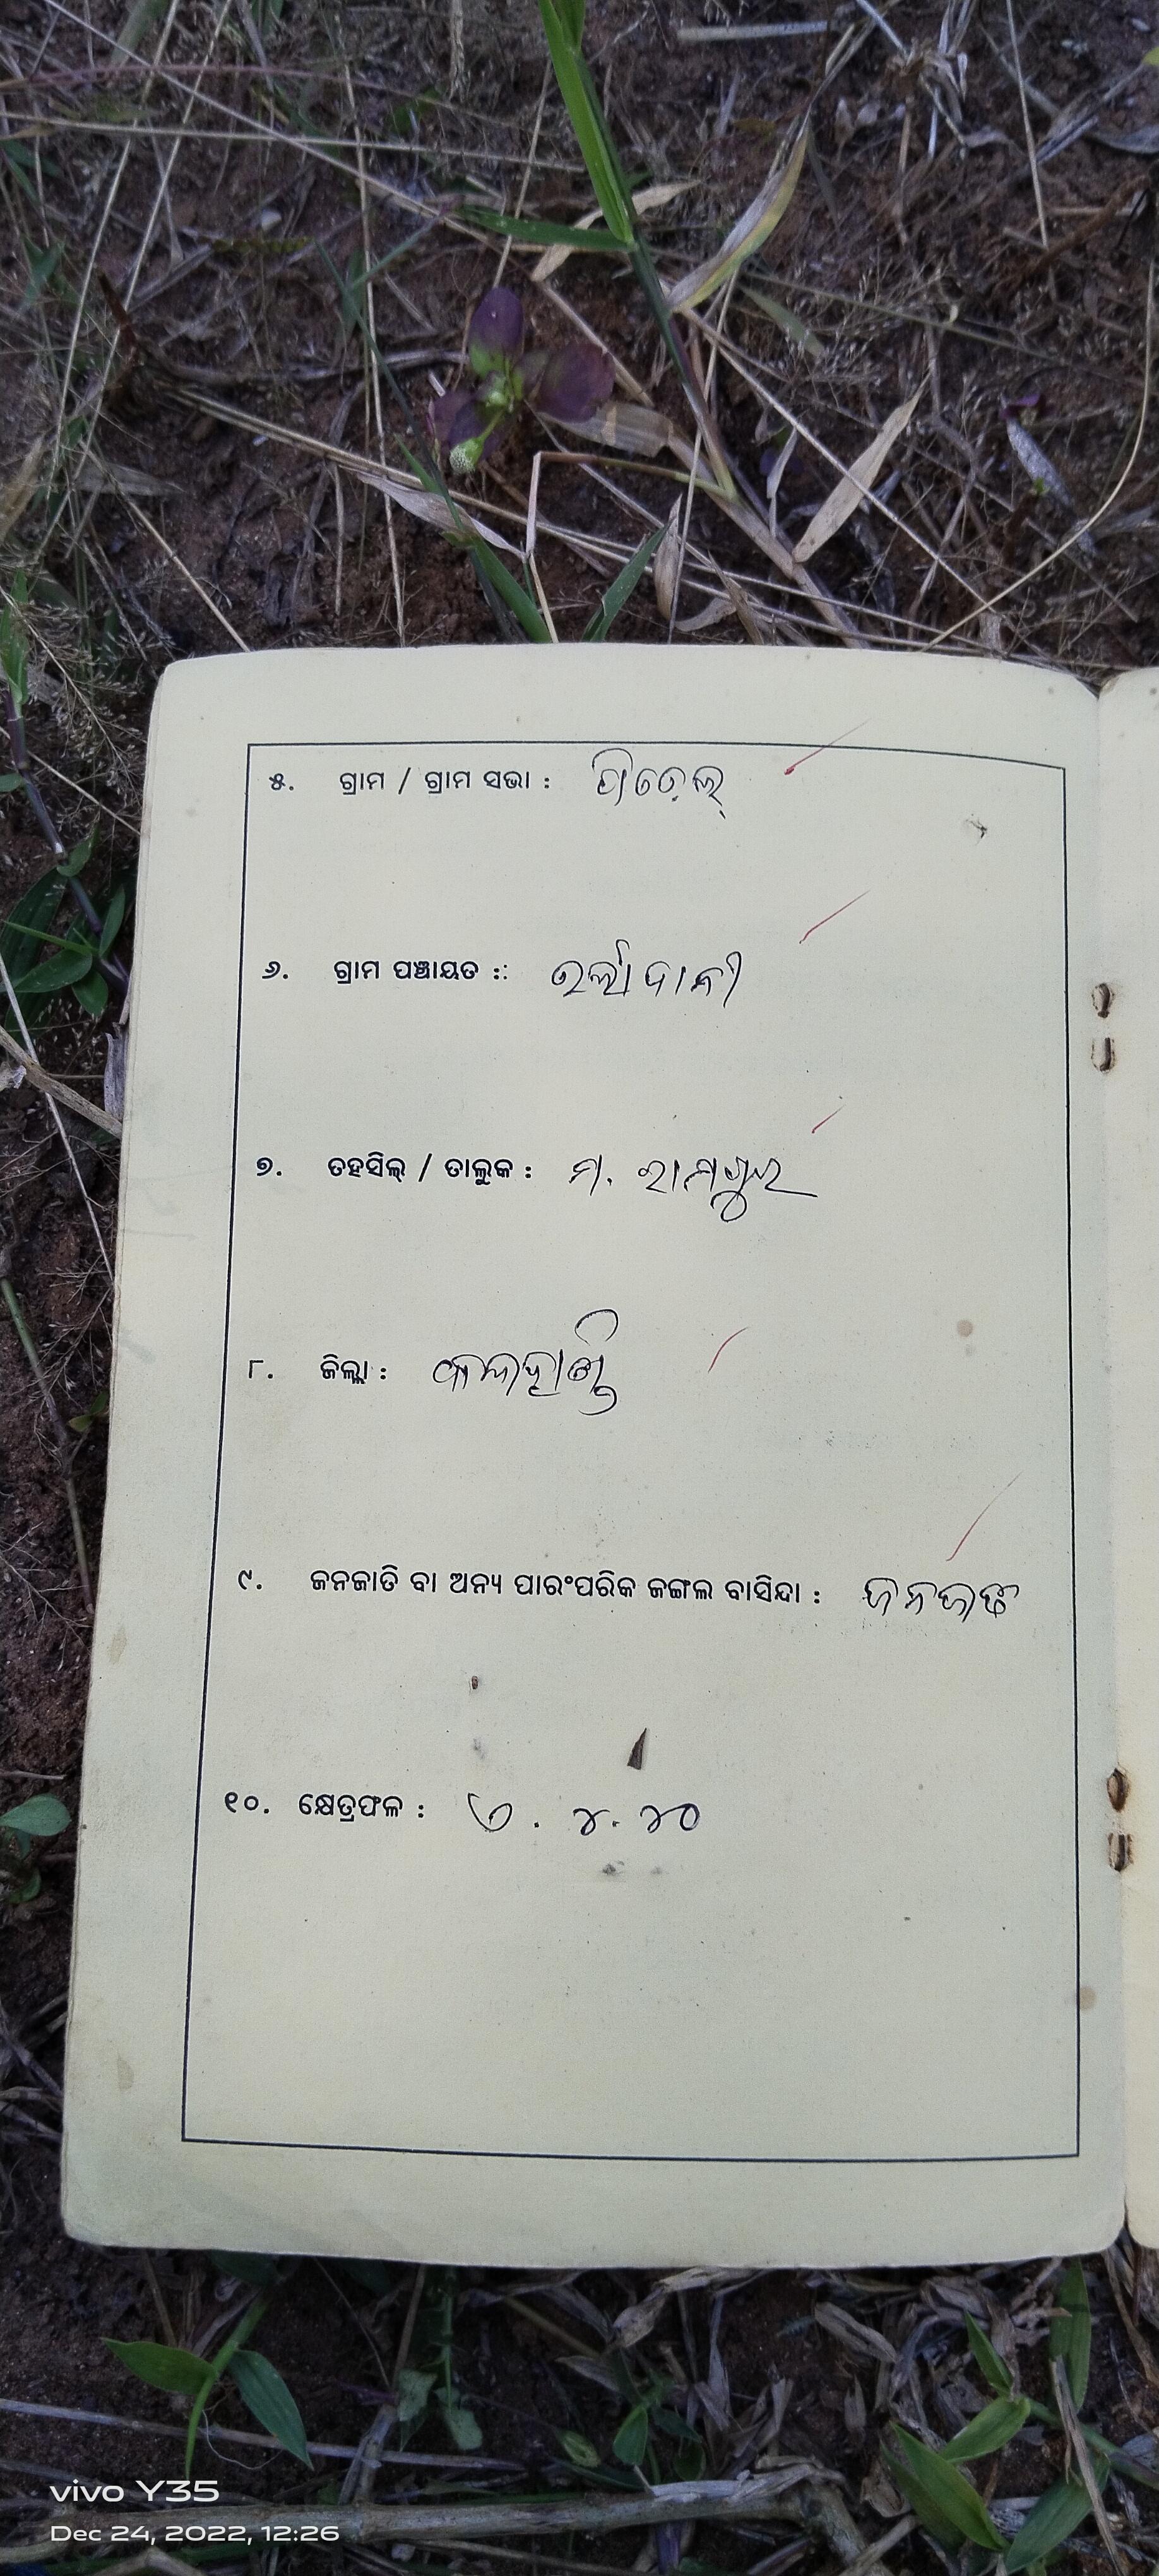 ୫. ଗ୍ରାମ / ଗ୍ରାମ ସଭା :
୬. ଗ୍ରାମ ପଞ୍ଚାୟତ ::
୭. ତହସିଲ୍ / ତାଲୁକ : ମ. ରାମପୁର
୮. ଜିଲ୍ଲା : କଳାହାଣ୍ଡି
୯. ଜନଜାତି ବା ଅନ୍ୟ ପାରଂପରିକ ଜଙ୍ଗଲ ବାସିନ୍ଦା :
୧୦. କ୍ଷେତ୍ରଫଳ : ୭. ୪. ୪୦
vivo Y35
Dec 24, 2022, 12:26